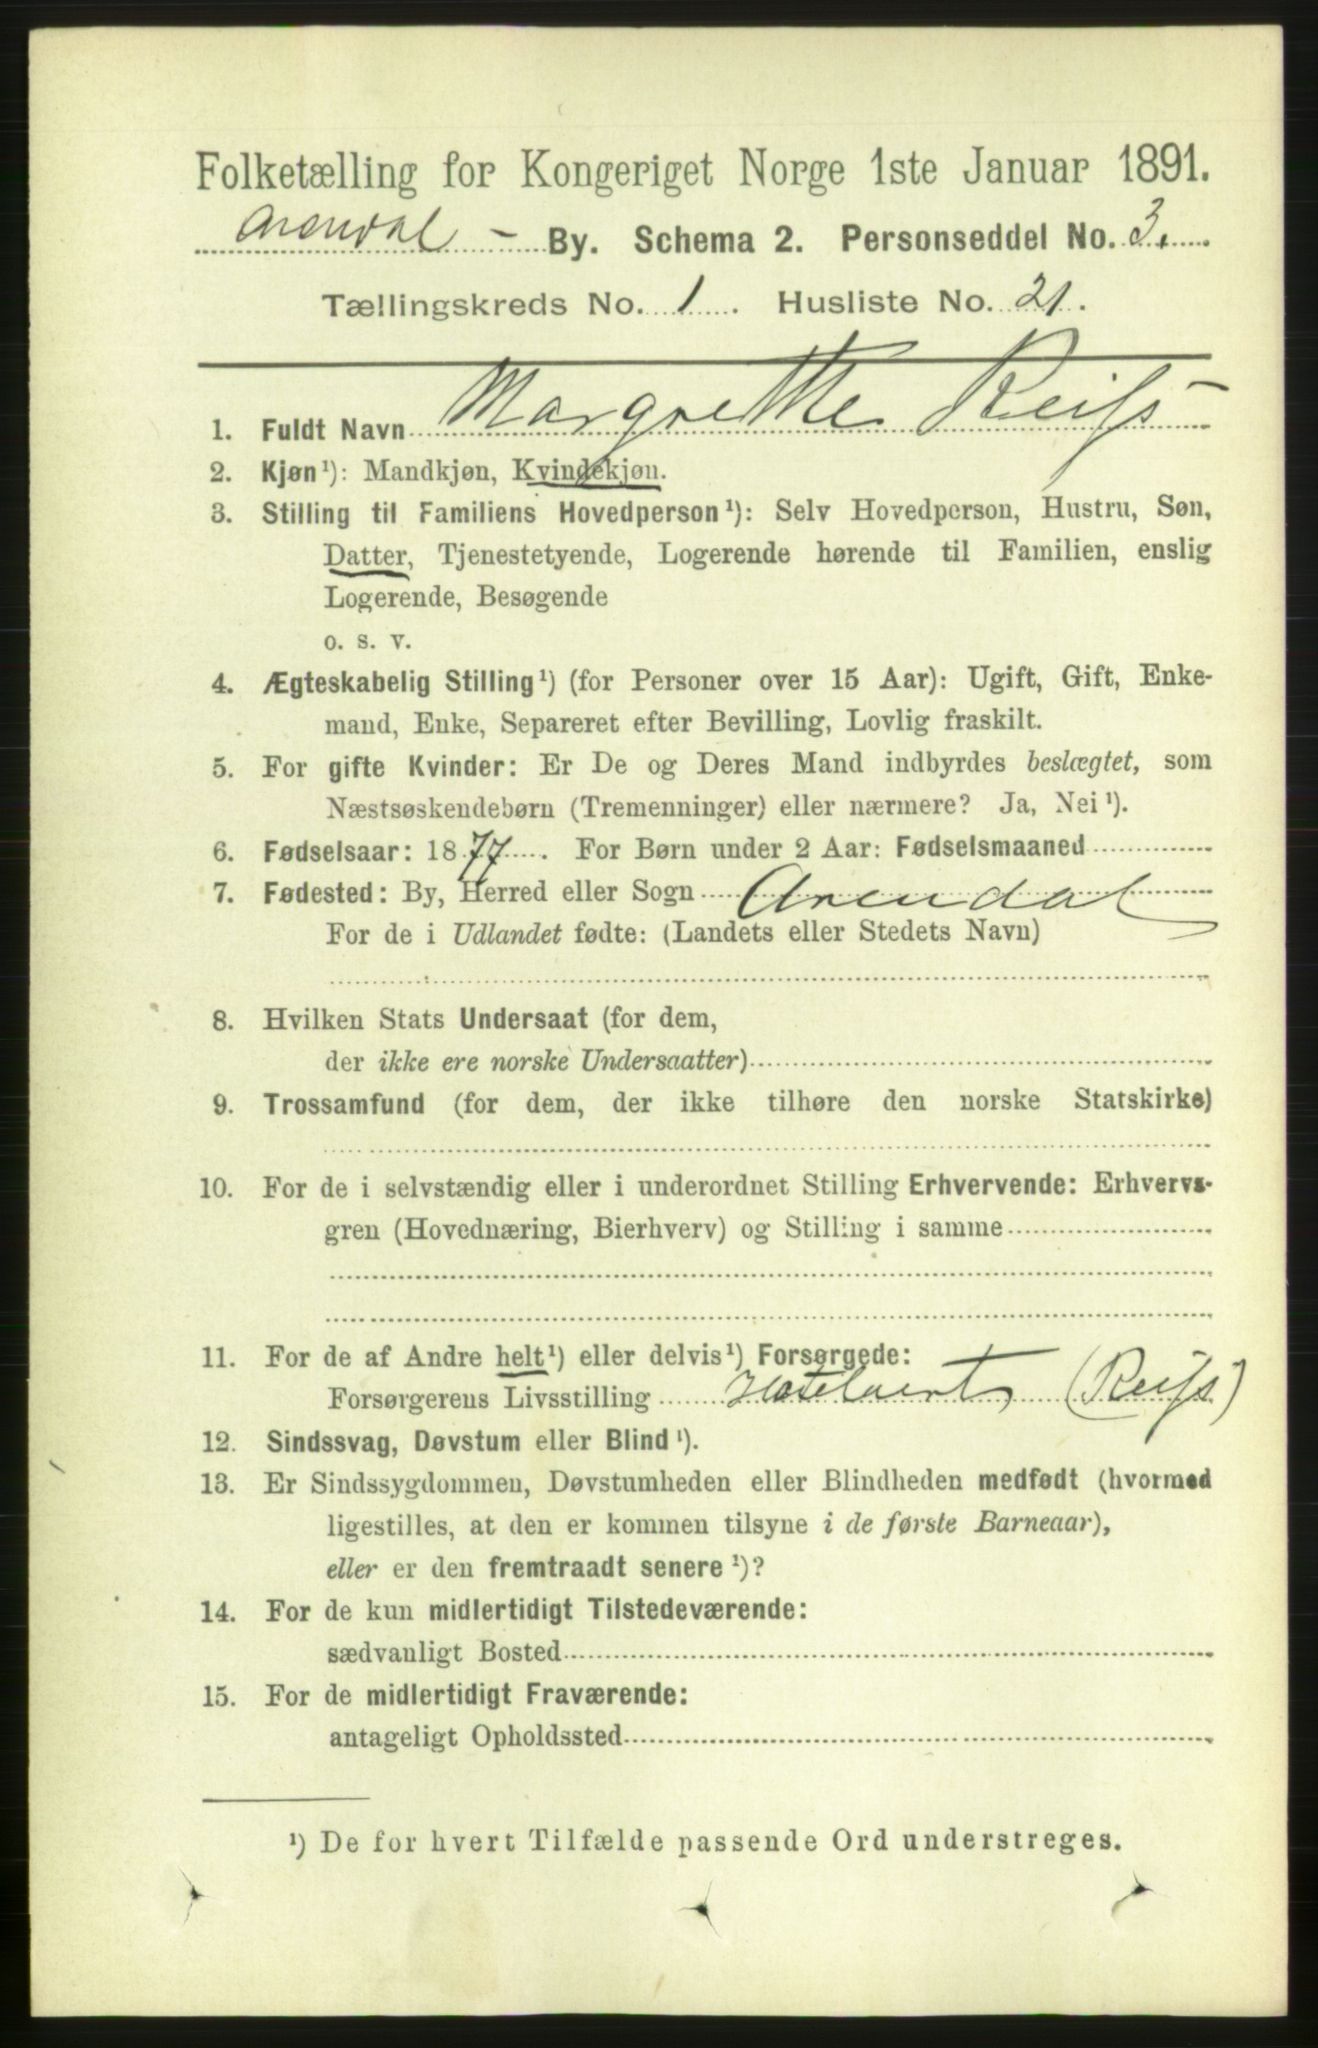 Folketælling for Kongeriget Norge 1ste Januar 1891.
Arendal - By. Schema 2. Personseddel No. 3.
Tællingskreds No. 1. Husliste No. 21.
1. Fuldt Navn Margrethe Reifs
2. Kjøn¹): Mandkjøn, Kvindekjøn.
3. Stilling til Familiens Hovedperson¹): Selv Hovedperson, Hustru, Søn,
Datter, Tjenestetyende, Logerende hørende til Familien, enslig
Logerende, Besøgende
o. s. v.
4. Ægteskabelig Stilling¹) (for Personer over 15 Aar): Ugift, Gift, Enke-
mand, Enke, Separeret efter Bevilling, Lovlig fraskilt.
5. For gifte Kvinder: Er De og Deres Mand indbyrdes beslægtet, som
Næstsøskendebørn (Tremenninger) eller nærmere? Ja, Nei¹).
6. Fødselsaar: 1877. For Børn under 2 Aar: Fødselsmaaned
7. Fødested: By, Herred eller Sogn Arendal
For de i Udlandet fødte: (Landets eller Stedets Navn)
8. Hvilken Stats Undersaat (for dem,
der ikke ere norske Undersaatter)
9. Trossamfund (for dem, der ikke tilhøre den norske Statskirke)
10. For de i selvstændig eller i underordnet Stilling Erhvervende: Erhvervs-
gren (Hovednæring, Bierhverv) og Stilling i samme
11. For de af Andre helt¹) eller delvis¹) Forsørgede:
Forsørgerens Livsstilling Hotelvert (Reifs)
12. Sindssvag, Døvstum eller Blind¹).
13. Er Sindssygdommen, Døvstumheden eller Blindheden medfødt (hvormed
ligestilles, at den er kommen tilsyne i de første Barneaar),
eller er den fremtraadt senere¹)?
14. For de kun midlertidigt Tilstedeværende:
sædvanligt Bosted
15. For de midlertidigt Fraværende:
antageligt Opholdssted
¹) De for hvert Tilfælde passende Ord understreges.